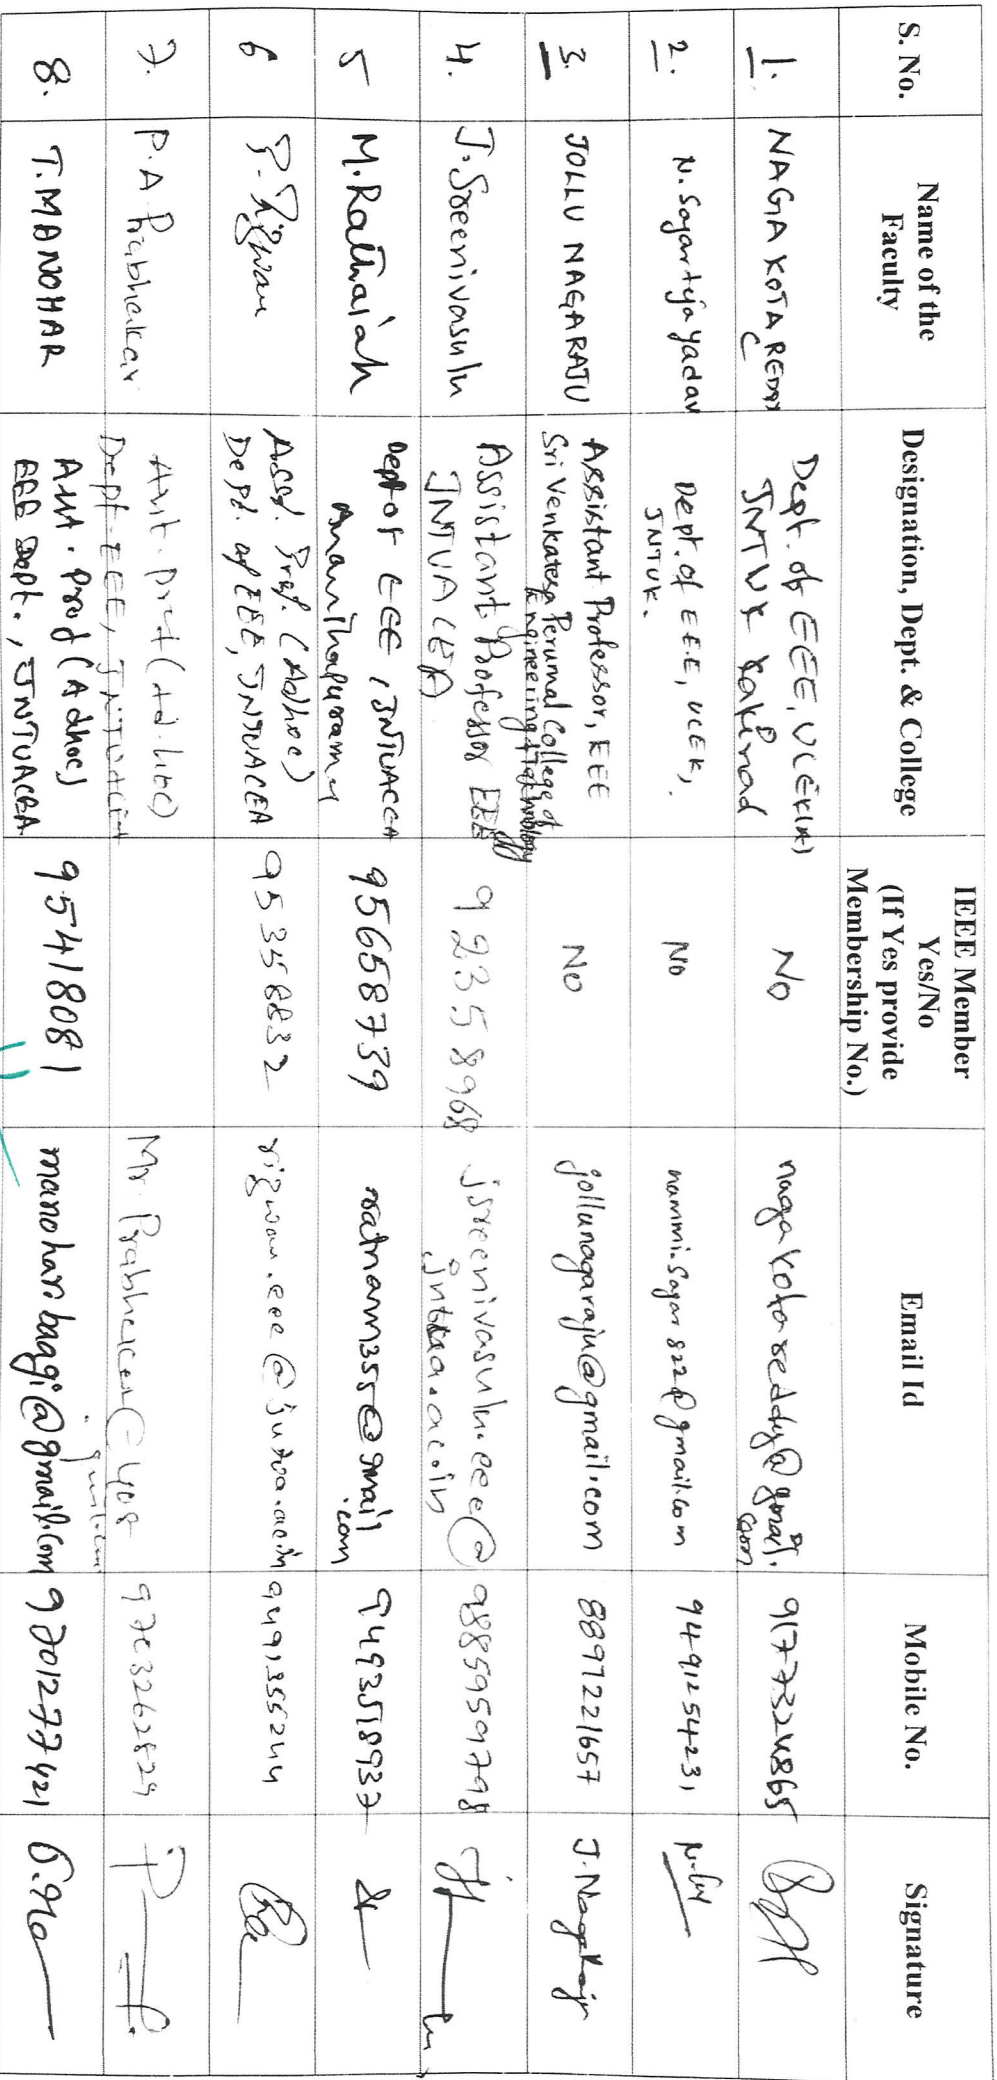 S. No.
Name of the
Faculty
Designation, Dept. & College
IEEE Member
Yes/No
(If Yes provide
Membership No.)
Email Id
Mobile No.
Signature
1.
NAGA KOTA REDDY
C
Dept. of EEE, UCEK(A)
JNTUK Kakinad
No
nagakotareddy@gmail.
com
9177324865
2.
N. Sagarteja Yadav
Dept. of EEE, UCEK,
JNTUK.
No
nammi.sagar822@gmail.com
9491254231
3.
JOLLU NAGARAJU
Assistant Professor, EEE
Sri Venkatesa Perumal College of
Engineering & Technology
No
jollunagaraju@gmail.com
8897221657
J. Nagaraju
4.
J. Sreenivasulu
Assistant Professor EEE
JNTUA CEA
92358968
jsreenivasulu.eee@
jntua.ac.in
9885959798
5
M. Rathaiah
Dept of EEE, JNTUACEA
Ananthapuramu
95658739
ratnam355@gmail
.com
9493518937
6
P. Rizwan
Asst. Prof. (Adhoc)
Dept. of EEE, JNTUACEA
95358832
rizwan.eee@jntua.ac.in
9491355244
7.
P. A Prabhakar
Asst. Prof (Ad.hoc)
Dept EEE, JNTUACEA
gmail.com
8.
T. MANOHAR
Asst. Prof (Adhoc)
EEE Dept., JNTUACEA
95418081
manoharbagi@gmail.com
9701277421